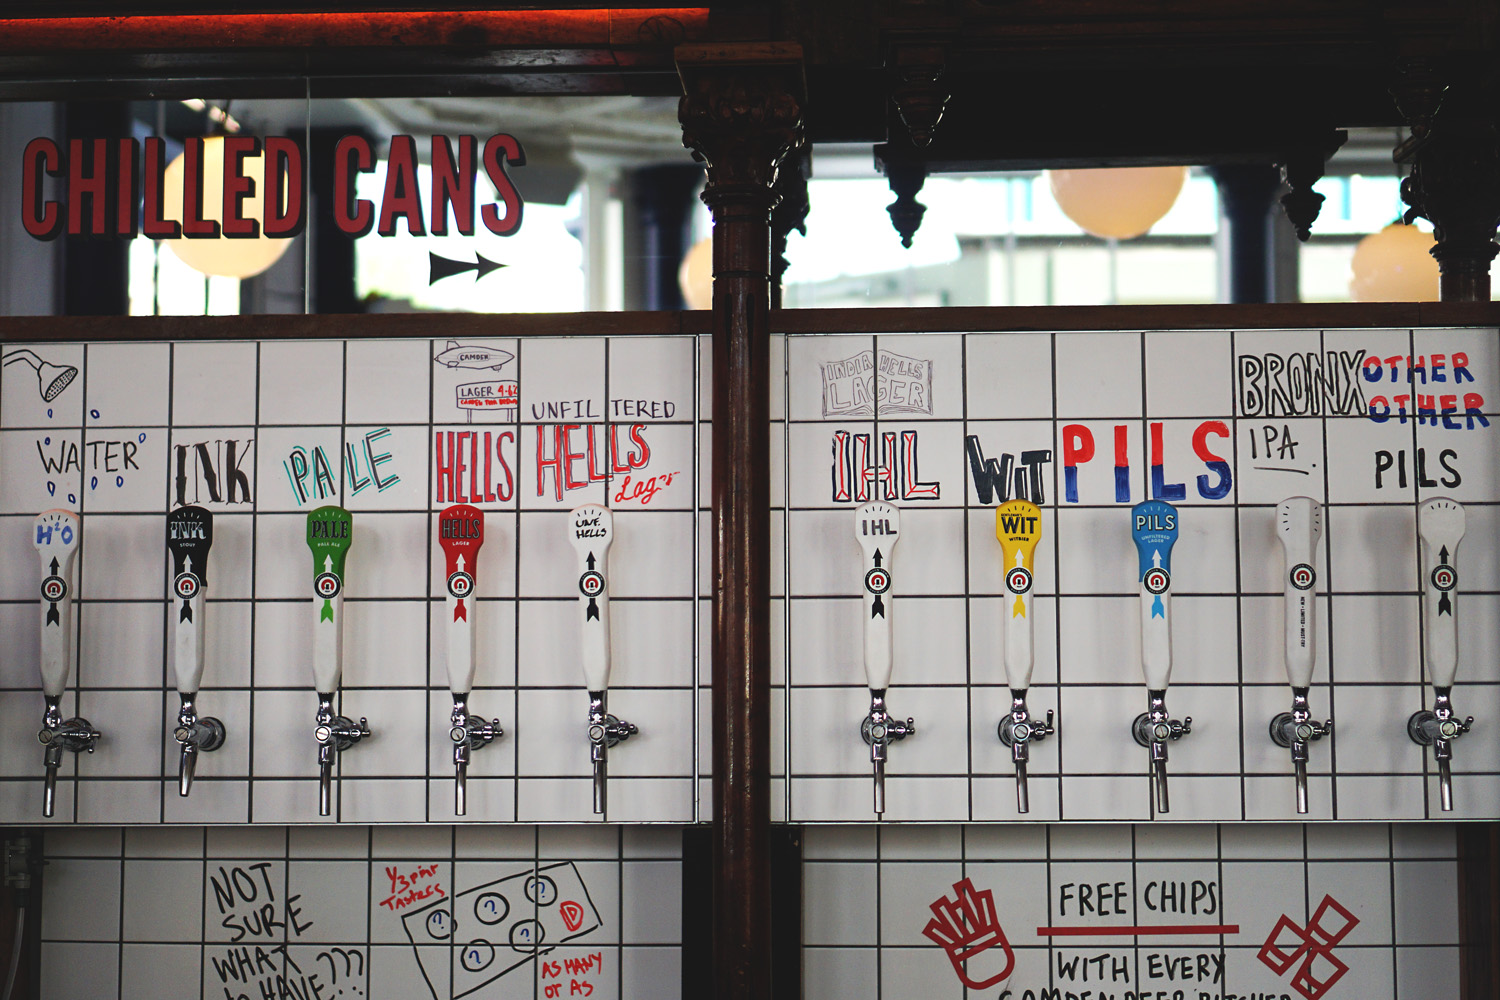 CHILLED CANS
CAMDEN
LAGER 4.6%
WATER
INK
PALE
HELLS
UNFILTERED
HELLS
Lager
INDIA HELLS
LAGER
IHL
WIT
PILS
BRONX
IPA
OTHER
OTHER
PILS
H2O
INK
STOUT
PALE
PALE ALE
HELLS
LAGER
UNF.
HELLS
IHL
GENTLEMAN'S
WIT
WITBIER
PILS
UNFILTERED
LAGER
NOT
SURE
WHAT
to HAVE???
1/3 PINT
TASTERS
?
?
?
?
?
AS MANY
OR AS
FREE CHIPS
WITH EVERY
CAMDEN BEER PITCHER